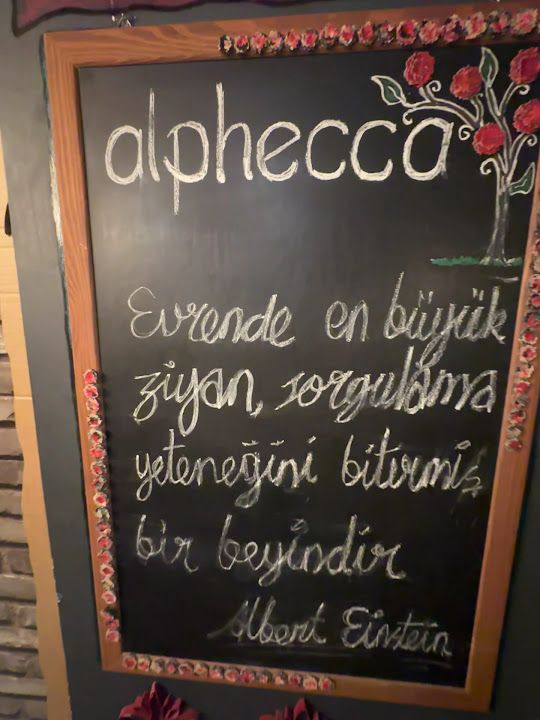 alphecca
Evrende en büyük
ziyan, sorgulama
yeteneğini bitirmiş
bir beyindir
Albert Einstein